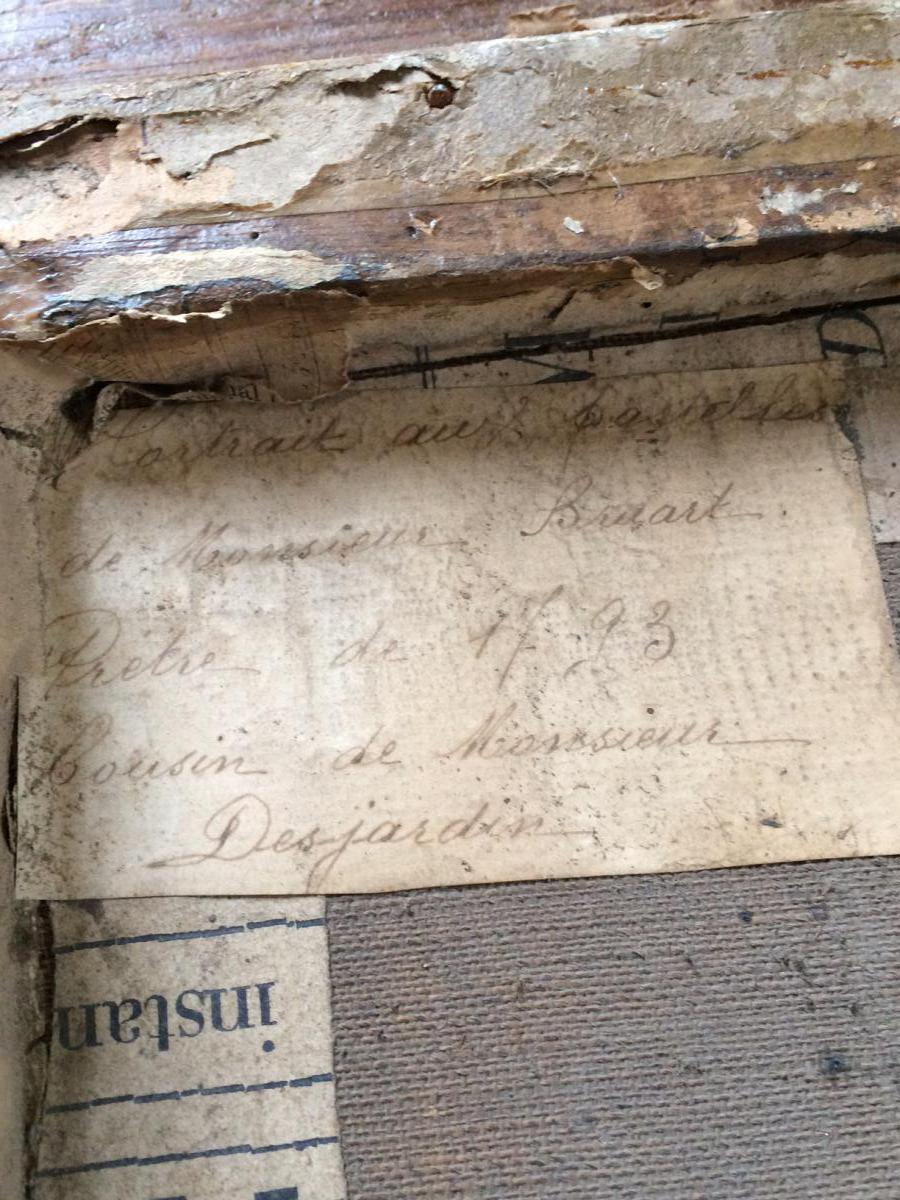 Portrait aux
de Monsieur Bruart
Prêtre de 1793
Cousin de Monsieur
Desjardin
instan